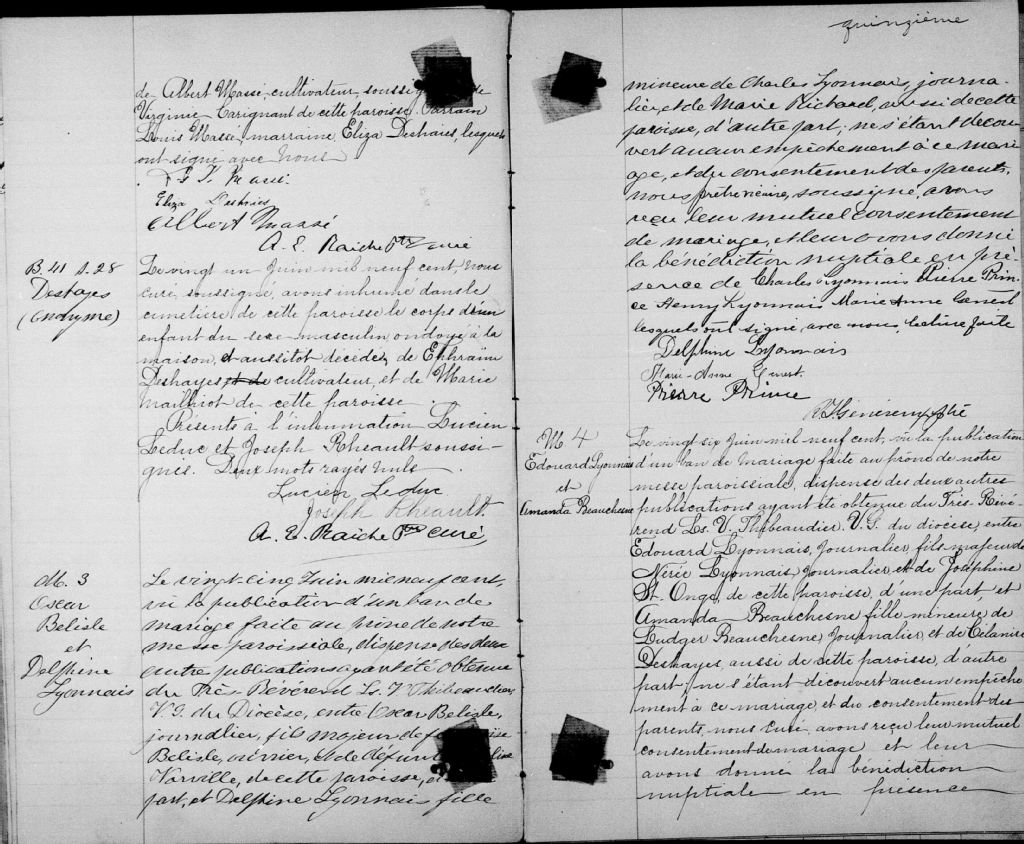 de Albert Massé, cultivateur, soussigné et de
Virginie Carignant de cette paroisse. Parrain
Louis Massé, marraine Eliza Deshaies, lesquels
ont signé avec nous
Eliza Deshaies
Albert Massé
A. E. Raiche Ptre curé
B. 41 S. 28
Deshayes
(Anonyme)
Le vingt un Juin mil neuf cent, nous
curé, soussigné, avons inhumé dans le
cimetière de cette paroisse le corps d'un
enfant du sexe masculin, ondoyé à la
maison, et aussitot décédés, de Ephraim
Deshayes et de cultivateur, et de Marie
Mailhiot de cette paroisse.
Présents à l'inhumation Lucien
Leduc et Joseph Rheault soussi-
gnés. Deux mots rayés nuls
Lucien Leduc
Joseph Rheault
A. E. Raiche Ptre curé,
M. 3
Oscar
Belisle
et
Delphine
Lyonnais
Le vingt-cinq Juin mil neuf cent,
vu la publication d'un ban de
mariage faite au prône de notre
messe paroissiale, dispense des deux
autre publications ayant été obtenue
du Très Reverend Ls. V. Thibeaudier
V. G. du Diocèse, entre Oscar Belisle,
journalier, fils majeur de
Belisle, ouvrier, et de défunte
de cette paroisse, d'
part, et Delphine Lyonnais fille
quinzième
mineure de Charles Lyonnais, journa-
lier, et de Marie Richard, aussi de cette
paroisse, d'autre part; ne s'étant décou
vert aucun empêchement à ce mari
age, et du consentement des parents,
nous prêtre vicaire, soussigné, avons
reçu leur mutuel consentement
de mariage, et leur avons donné
la bénédiction nuptiale en pré-
sence de Charles Lyonnais Pierre Prin-
ce Henry Lyonnais Marie Anne Genest
lesquels ont signé, avec nous lecture faite
Delphine Lyonnais
Marie-Anne Genest.
Pierre Prince
M 4
Edouard Lyonnais
et
Amanda Beauchesne
Le vingt six Juin mil neuf cent, vu la publication
d'un ban de mariage faite au prône de notre
messe paroissiale, dispense des deux autres
publications ayant été obtenue du Très-Révé-
rend Ls. V. Thibeaudier, V. G. du diocèse, entre
Edouard Lyonnais, Journalier, fils majeur de
Nérée Lyonnais, Journalier, et de Josephine
St. Onge, de cette paroisse, d'une part et
Amanda Beauchesne fille mineure de
Ludger Beauchesne, Journalier, et de Célanise
Deshayes, aussi de cette paroisse, d'autre
part; ne s'étant découvert aucun empêche
ment à ce mariage, et du consentement des
parents, nous curé, avons reçu leur mutuel
consentement de mariage, et leur
avons donné la bénédiction
nuptiale en présence